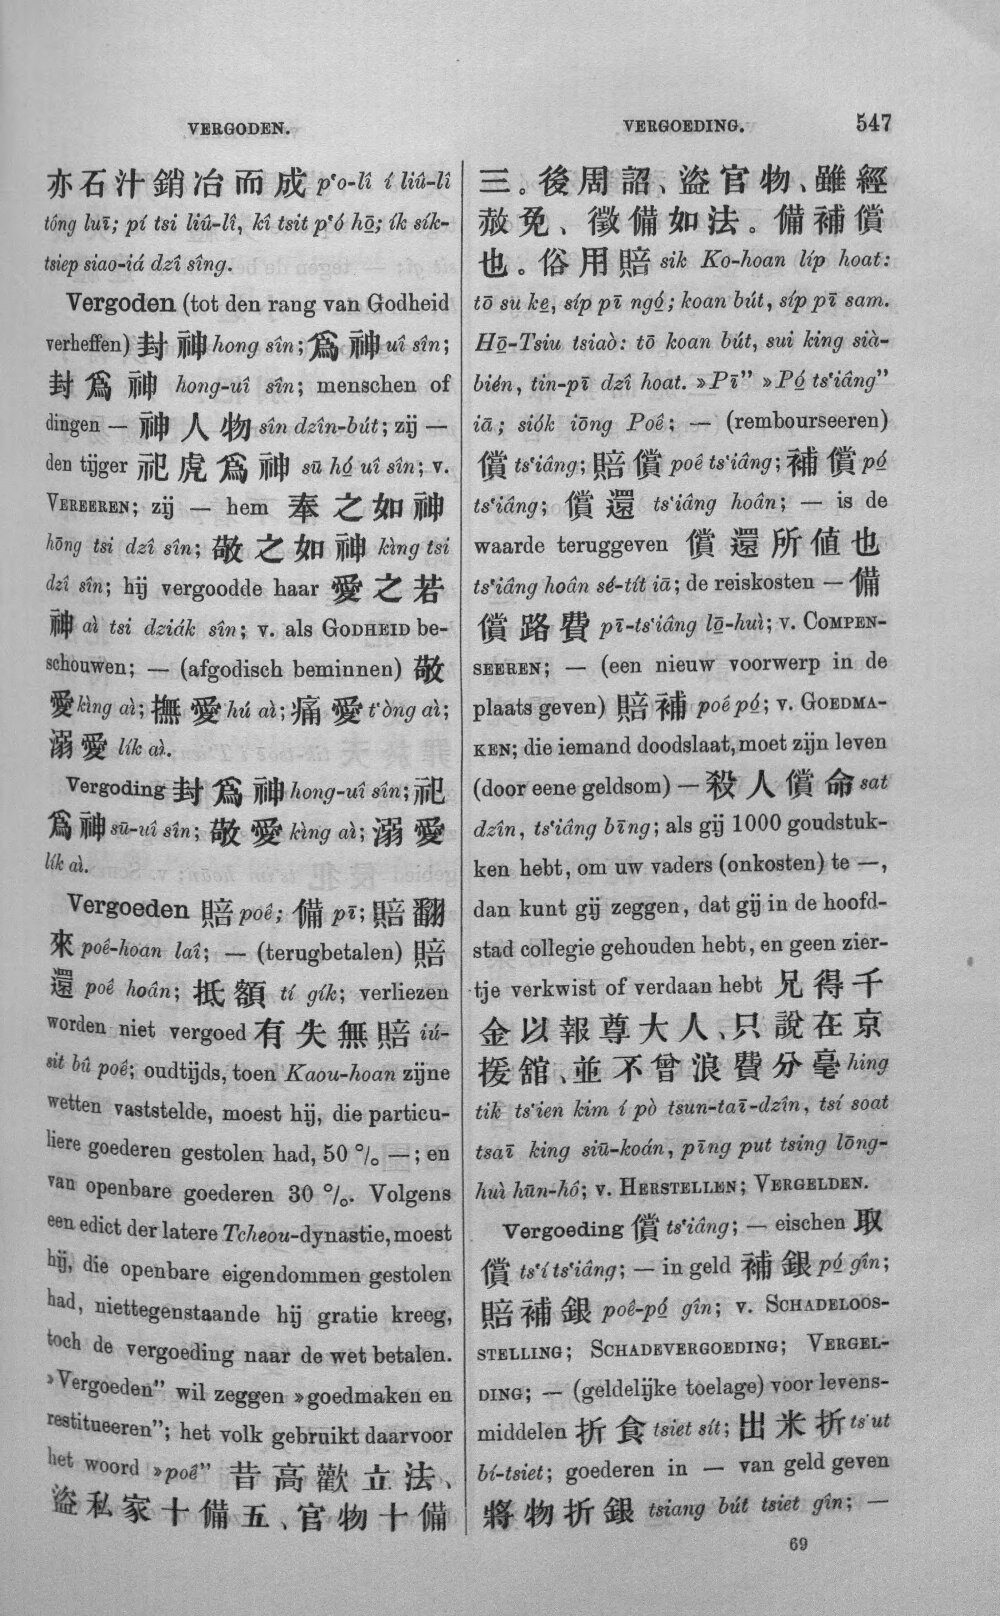 VERGODEN.
VERGOEDING.
547
亦石汁銷冶而成 p‘o-lî í liû-lî
tông luī; pí tsi liû-lî, kî tsit p‘ó hō̤; ík sík-
tsiep siao-iá dzî sîng.
Vergoden (tot den rang van Godheid
verheffen) 封神 hong sîn; 爲神 uî sîn;
封爲神 hong-uî sîn; menschen of
dingen — 神人物 sîn dzîn-bút; zij —
den tijger 祀虎爲神 sū hó̤ uî sîn; v.
VEREEREN; zij — hem 奉之如神
hōng tsi dzî sîn; 敬之如神 kìng tsi
dzî sîn; hij vergoodde haar 愛之若
神 aì tsi dziák sîn; v. als GODHEID be-
schouwen; — (afgodisch beminnen) 敬
愛 kìng aì; 撫愛 hú aì; 痛愛 t‘òng aì;
溺愛 lík aì.
Vergoding 封爲神 hong-uî sîn; 祀
爲神 sū-uî sîn; 敬愛 kìng aì; 溺愛
lík aì.
Vergoeden 賠 poê; 備 pī; 賠翻
來 poê-hoan laî; — (terugbetalen) 賠
還 poê hoân; 抵額 tí gík; verliezen
worden niet vergoed 有失無賠 iú-
sit bû poê; oudtijds, toen Kaou-hoan zijne
wetten vaststelde, moest hij, die particu-
liere goederen gestolen had, 50 % —; en
van openbare goederen 30 %. Volgens
een edict der latere Tcheou-dynastie, moest
hij, die openbare eigendommen gestolen
had, niettegenstaande hij gratie kreeg,
toch de vergoeding naar de wet betalen.
»Vergoeden" wil zeggen »goedmaken en
restitueeren"; het volk gebruikt daarvoor
het woord »poê" 昔高歡立法、
盜私家十備五、官物十備
三。後周詔、盜官物、雖經
赦免、徵備如法。備補償
也。俗用賠 sik Ko-hoan líp hoat:
tō su ke̤, síp pī ngó̤; koan bút, síp pī sam.
Hō̤-Tsiu tsiaò: tō koan bút, sui king sià-
bién, tin-pī dzî hoat. »Pī" »Pó̤ ts‘iâng"
iā; siók iōng Poê; — (rembourseeren)
償 ts‘iâng; 賠償 poê ts‘iâng; 補償 pó̤
ts‘iâng; 償還 ts‘iâng hoân; — is de
waarde teruggeven 償還所値也
ts‘iâng hoân sé-tít iā; de reiskosten — 備
償路費 pī-ts‘iâng lō̤-huì; v. COMPEN-
SEEREN; — (een nieuw voorwerp in de
plaats geven) 賠補 poê pó̤; v. GOEDMA-
KEN; die iemand doodslaat, moet zijn leven
(door eene geldsom) — 殺人償命 sat
dzîn, ts‘iâng bīng; als gij 1000 goudstuk-
ken hebt, om uw vaders (onkosten) te —,
dan kunt gij zeggen, dat gij in de hoofd-
stad collegie gehouden hebt, en geen zier-
tje verkwist of verdaan hebt 兄得千
金以報尊大人、只說在京
援舘、並不曾浪費分毫 hing
tik ts‘ien kim í pò tsun-taī-dzîn, tsí soat
tsaī king siū-koán, pīng put tsing lōng-
huì hūn-hô; v. HERSTELLEN; VERGELDEN.
Vergoeding 償 ts‘iâng; — eischen 取
償 ts‘í ts‘iâng; — in geld 補銀 pó̤ gîn;
賠補銀 poê-pó̤ gîn; v. SCHADELOOS-
STELLING; SCHADEVERGOEDING; VERGEL-
DING; — (geldelijke toelage) voor levens-
middelen 折食 tsiet sít; 出米折 ts‘ut
bí-tsiet; goederen in — van geld geven
將物折銀 tsiang bút tsiet gîn; —
69